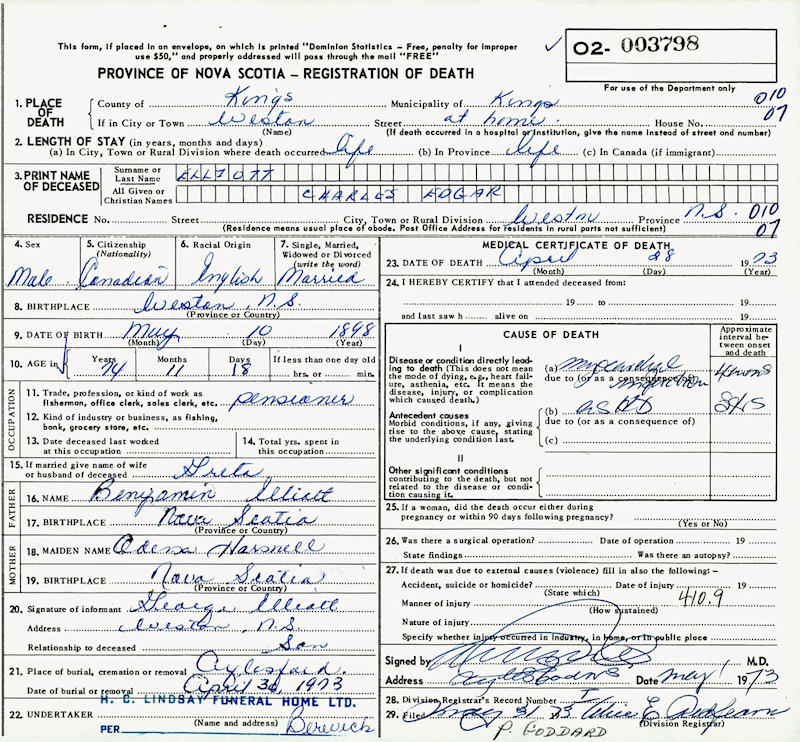 This form, if placed in an envelope, on which is printed "Dominion Statistics – Free, penalty for improper
use $50," and properly addressed will pass through the mail "FREE"
✓ 02- 003798
PROVINCE OF NOVA SCOTIA – REGISTRATION OF DEATH
For use of the Department only
1. PLACE OF DEATH County of Kings Municipality of Kings 010
If in City or Town Weston Street at home House No. 07
(Name) (If death occurred in a hospital or institution, give the name instead of street and number)
2. LENGTH OF STAY (in years, months and days)
(a) In City, Town or Rural Division where death occurred life (b) In Province life (c) In Canada (if immigrant)
3. PRINT NAME OF DECEASED
Surname or Last Name ELLIOTT
All Given or Christian Names CHARLES EDGAR
RESIDENCE No. Street City, Town or Rural Division Weston Province N.S. 010
(Residence means usual place of abode. Post Office Address for residents in rural parts not sufficient) 07
4. Sex Male
5. Citizenship (Nationality) Canadian
6. Racial Origin English
7. Single, Married, Widowed or Divorced (write the word) Married
8. BIRTHPLACE Weston, N.S.
(Province or Country)
9. DATE OF BIRTH May 10 1898
(Month) (Day) (Year)
10. AGE in Years 74 Months 11 Days 18 If less than one day old hrs. or min.
OCCUPATION
11. Trade, profession, or kind of work as fisherman, office clerk, sales clerk, etc. pensioner
12. Kind of industry or business, as fishing, bank, grocery store, etc.
13. Date deceased last worked at this occupation
14. Total yrs. spent in this occupation
15. If married give name of wife or husband of deceased Greta
FATHER
16. NAME Benjamin Elliott
17. BIRTHPLACE Nova Scotia
(Province or Country)
MOTHER
18. MAIDEN NAME Odessa
19. BIRTHPLACE Nova Scotia
(Province or Country)
20. Signature of informant George Elliott
Address Weston, N.S.
Relationship to deceased Son
21. Place of burial, cremation or removal Aylesford
Date of burial or removal April 30, 1973
H. C. LINDSAY FUNERAL HOME LTD.
22. UNDERTAKER (Name and address) Berwick
PER
MEDICAL CERTIFICATE OF DEATH
23. DATE OF DEATH April 28 1973
(Month) (Day) (Year)
24. I HEREBY CERTIFY that I attended deceased from:
19 to 19
and last saw h alive on 19
CAUSE OF DEATH
Approximate interval between onset and death
I
Disease or condition directly leading to death (This does not mean the mode of dying, e.g. heart failure, asthenia, etc. It means the disease, injury, or complication which caused death.)
(a) myocardial infarction
due to (or as a consequence of)
Antecedent causes
Morbid conditions, if any, giving rise to the above cause, stating the underlying condition last.
(b) ASHD
due to (or as a consequence of)
(c)
II
Other significant conditions
contributing to the death, but not related to the disease or condition causing it.
25. If a woman, did the death occur either during
pregnancy or within 90 days following pregnancy?
(Yes or No)
26. Was there a surgical operation? Date of operation 19
State findings Was there an autopsy?
27. If death was due to external causes (violence) fill in also the following:–
Accident, suicide or homicide? Date of injury 19
(State which)
Manner of injury 410.9
(How sustained)
Nature of injury
Specify whether injury occurred in industry, in home, or in public place
Signed by M.D.
Address Date May 1 1973
28. Division Registrar's Record Number
29. Filed May 31 73
(Division Registrar)
P. GODDARD